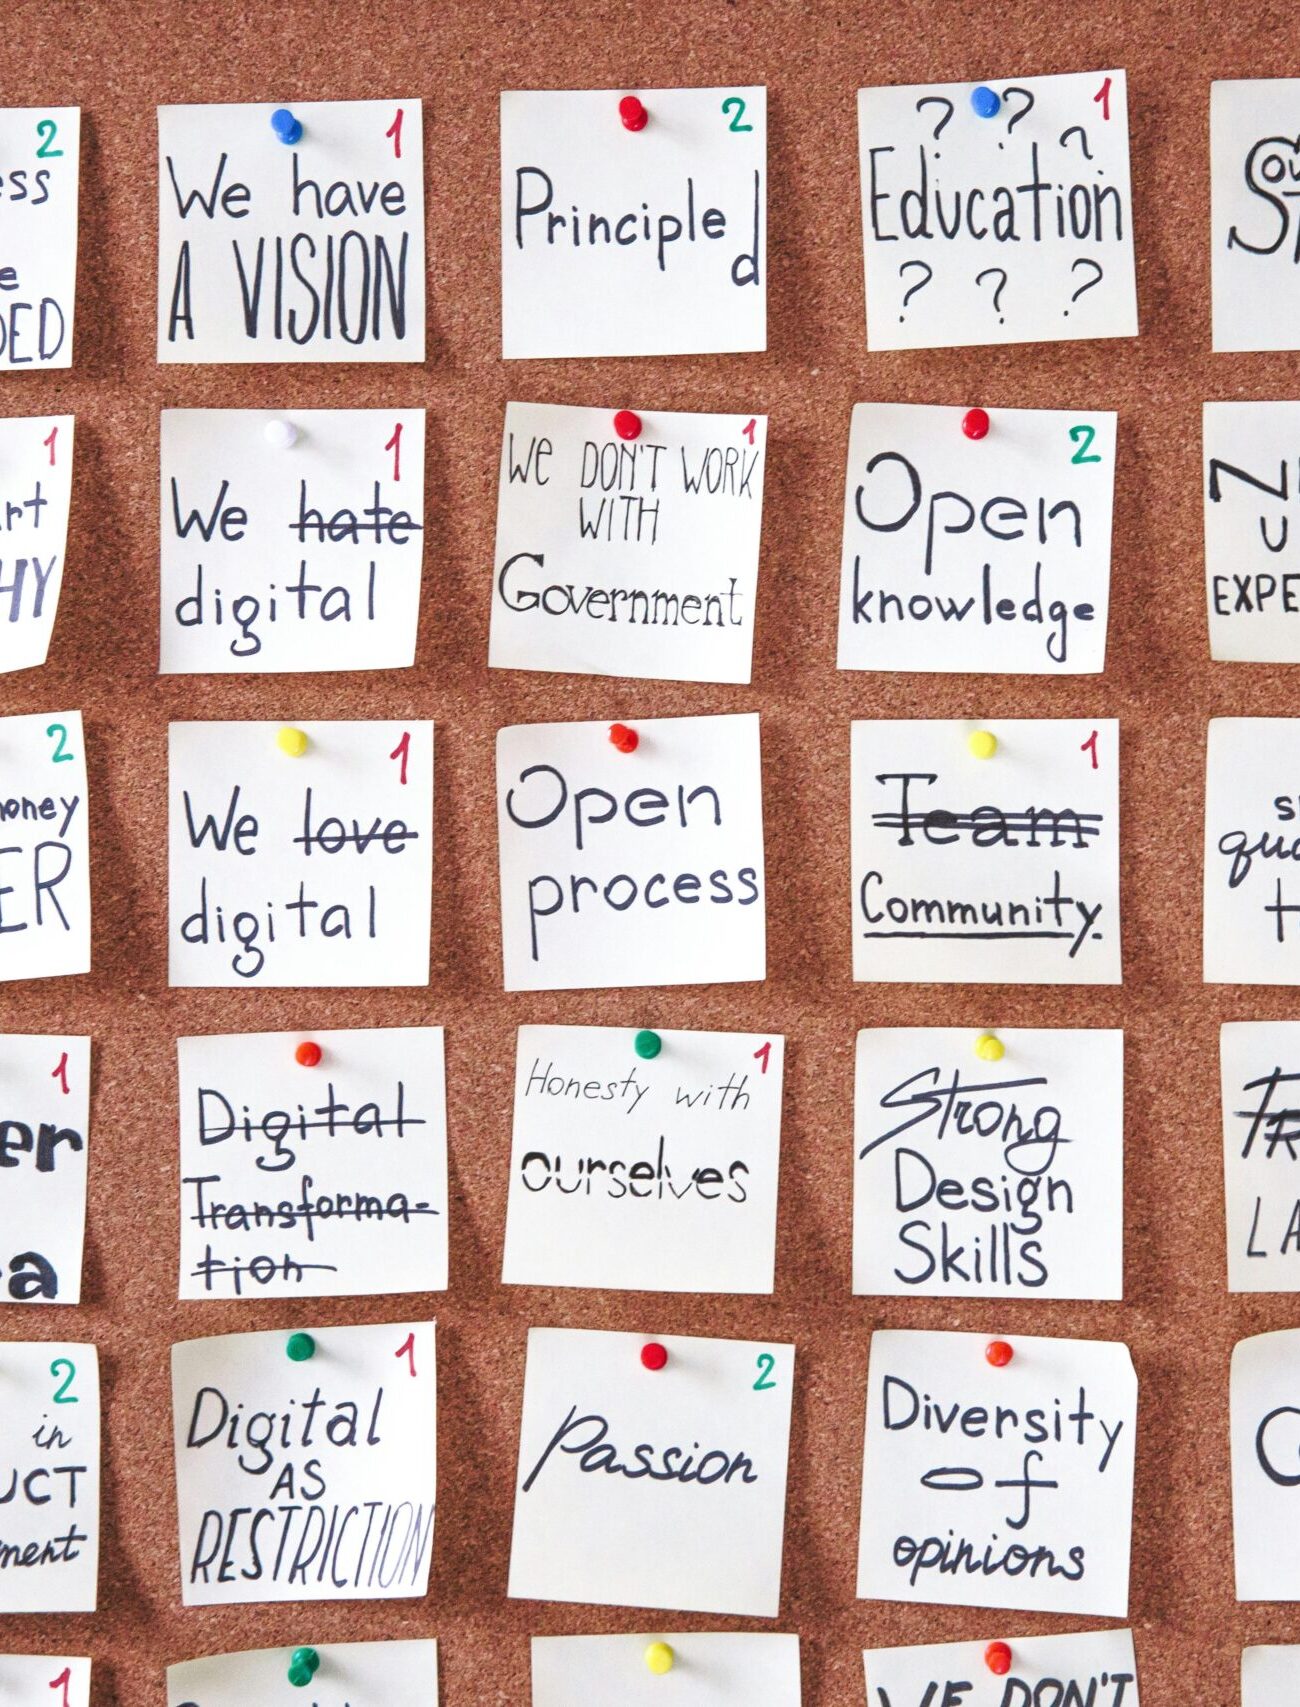 2
ess
e
DED
1
We have
A VISION
2
Principle
d
1
? ? ?
Education
? ? ?
1
art
HY
1
We hate
digital
1
We DON'T WORK
WITH
Government
2
Open
knowledge
EXPE
2
money
ER
1
We love
digital
Open
process
1
Team
Community.
1
er
a
Digital
Transforma-
tion
1
Honesty with
ourselves
Strong
Design
Skills
LA
2
in
UCT
ment
1
Digital
AS
RESTRICTION
2
Passion
Diversity
of
opinions
1
WE DON'T